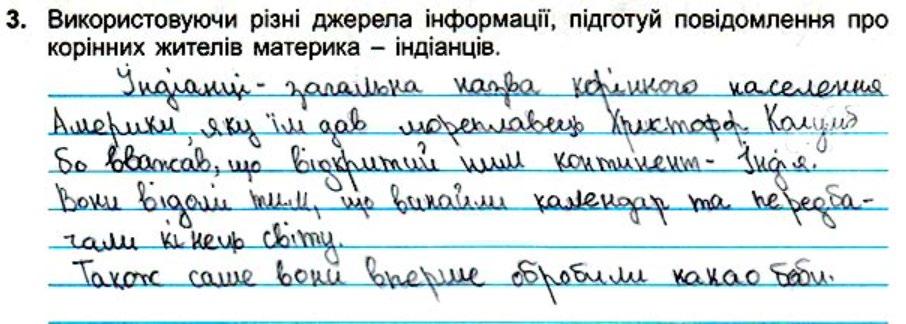 3. Використовуючи різні джерела інформації, підготуй повідомлення про
корінних жителів материка – індіанців.
Індіанці - загальна назва корінного населення
Америки, яку їм дав мореплавець Христофр Колумб
бо вважав, що відкритий ним континент - Індія.
Вони відомі тим, що винайшли календар та передба-
чали кінець світу.
Також саме вони вперше обробили какао боби.